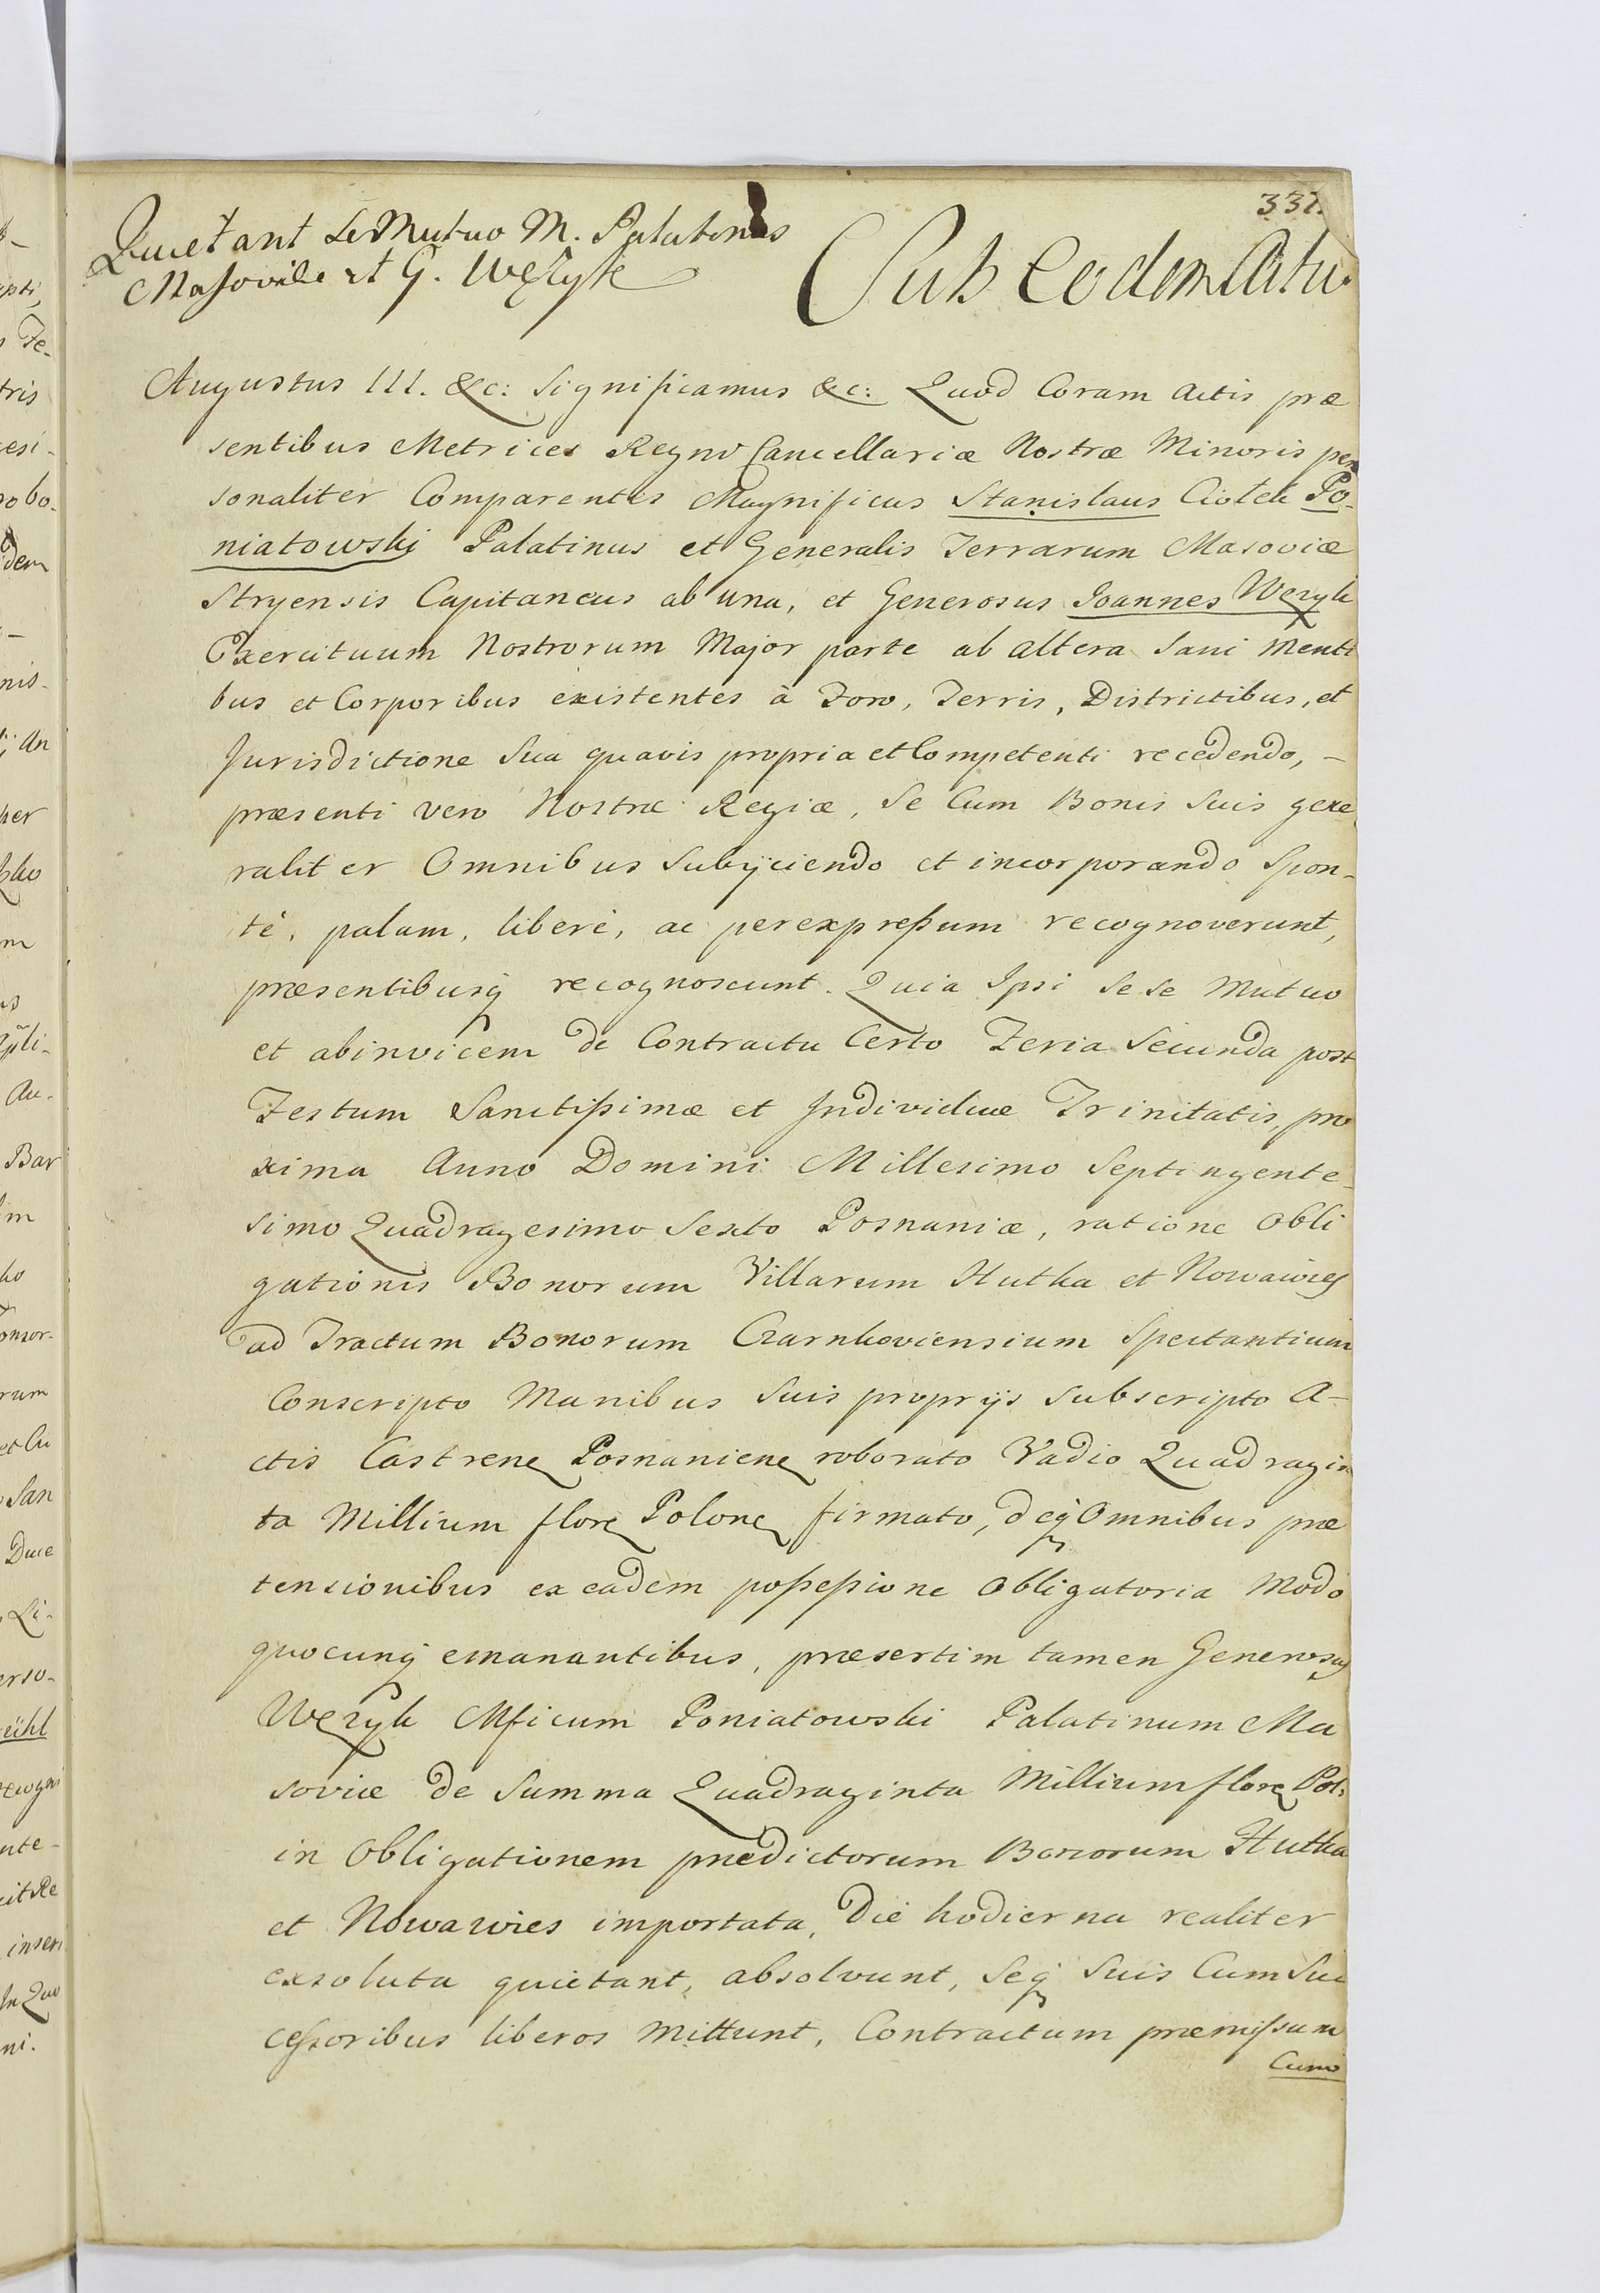 337.
Quietant se Mutuo M. Palatinus
Masoviæ et G. Węzyk
Sub Eodem Actu.
Augustus III. &c: Significamus &c: Quod Coram Actis præ
sentibus Metrices Regni Cancellariæ Nostræ Minoris per
sonaliter Comparentes Magnificus Stanislaus Ciołek Po-
niatowski Palatinus et Generalis Terrarum Masoviæ
Stryensis Capitaneus ab una, et Generosus Joannes Węzyk
Exercituum Nostrorum Major parte ab altera Sani Menti
bus et Corporibus existentes à Foro, Terris, Districtibus, et
Jurisdictione Sua quavis propria et Competenti recedendo, –
præsenti vero Nostræ Regiæ, Se Cum Bonis Suis gene
raliter Omnibus Subijciendo et incorporando Spon-
tè, palam, liberè, ac per expreßum recognoverunt,
præsentibusq recognoscunt. Quia Ipsi Se se Mutuo
et abinvicem de Contractu Certo Feria Secunda post
Festum Sanctißimæ et Individuæ Trinitatis, pro
xima Anno Domini Millesimo Septingente-
simo Quadragesimo Sexto Posnaniæ, ratione Obli
gationis Bonorum Villarum Hutka et Nowawies
ad Tractum Bonorum Czarnkoviensium Spectantium
Conscripto Manibus Suis proprijs Subscripto A-
ctis Castrenę Posnanienę roborato Vadio Quadragin
ta Millium florę Polonę firmato, deq Omnibus præ
tensionibus ex eadem poßeßione Obligatoria Modo
quocunq emanantibus, præsertim tamen Generosus
Węzyk Mficum Poniatowski Palatinum Ma
soviæ de Summa Quadraginta Millium florę Pol:
in Obligationem prædictorum Bonorum Hutka
et Nowawies importata, Die hodierna realiter
exsoluta quietant, absolvunt, Seq Suis Cum Suc
ceßoribus liberos Mittunt, Contractum præmißum
Cum